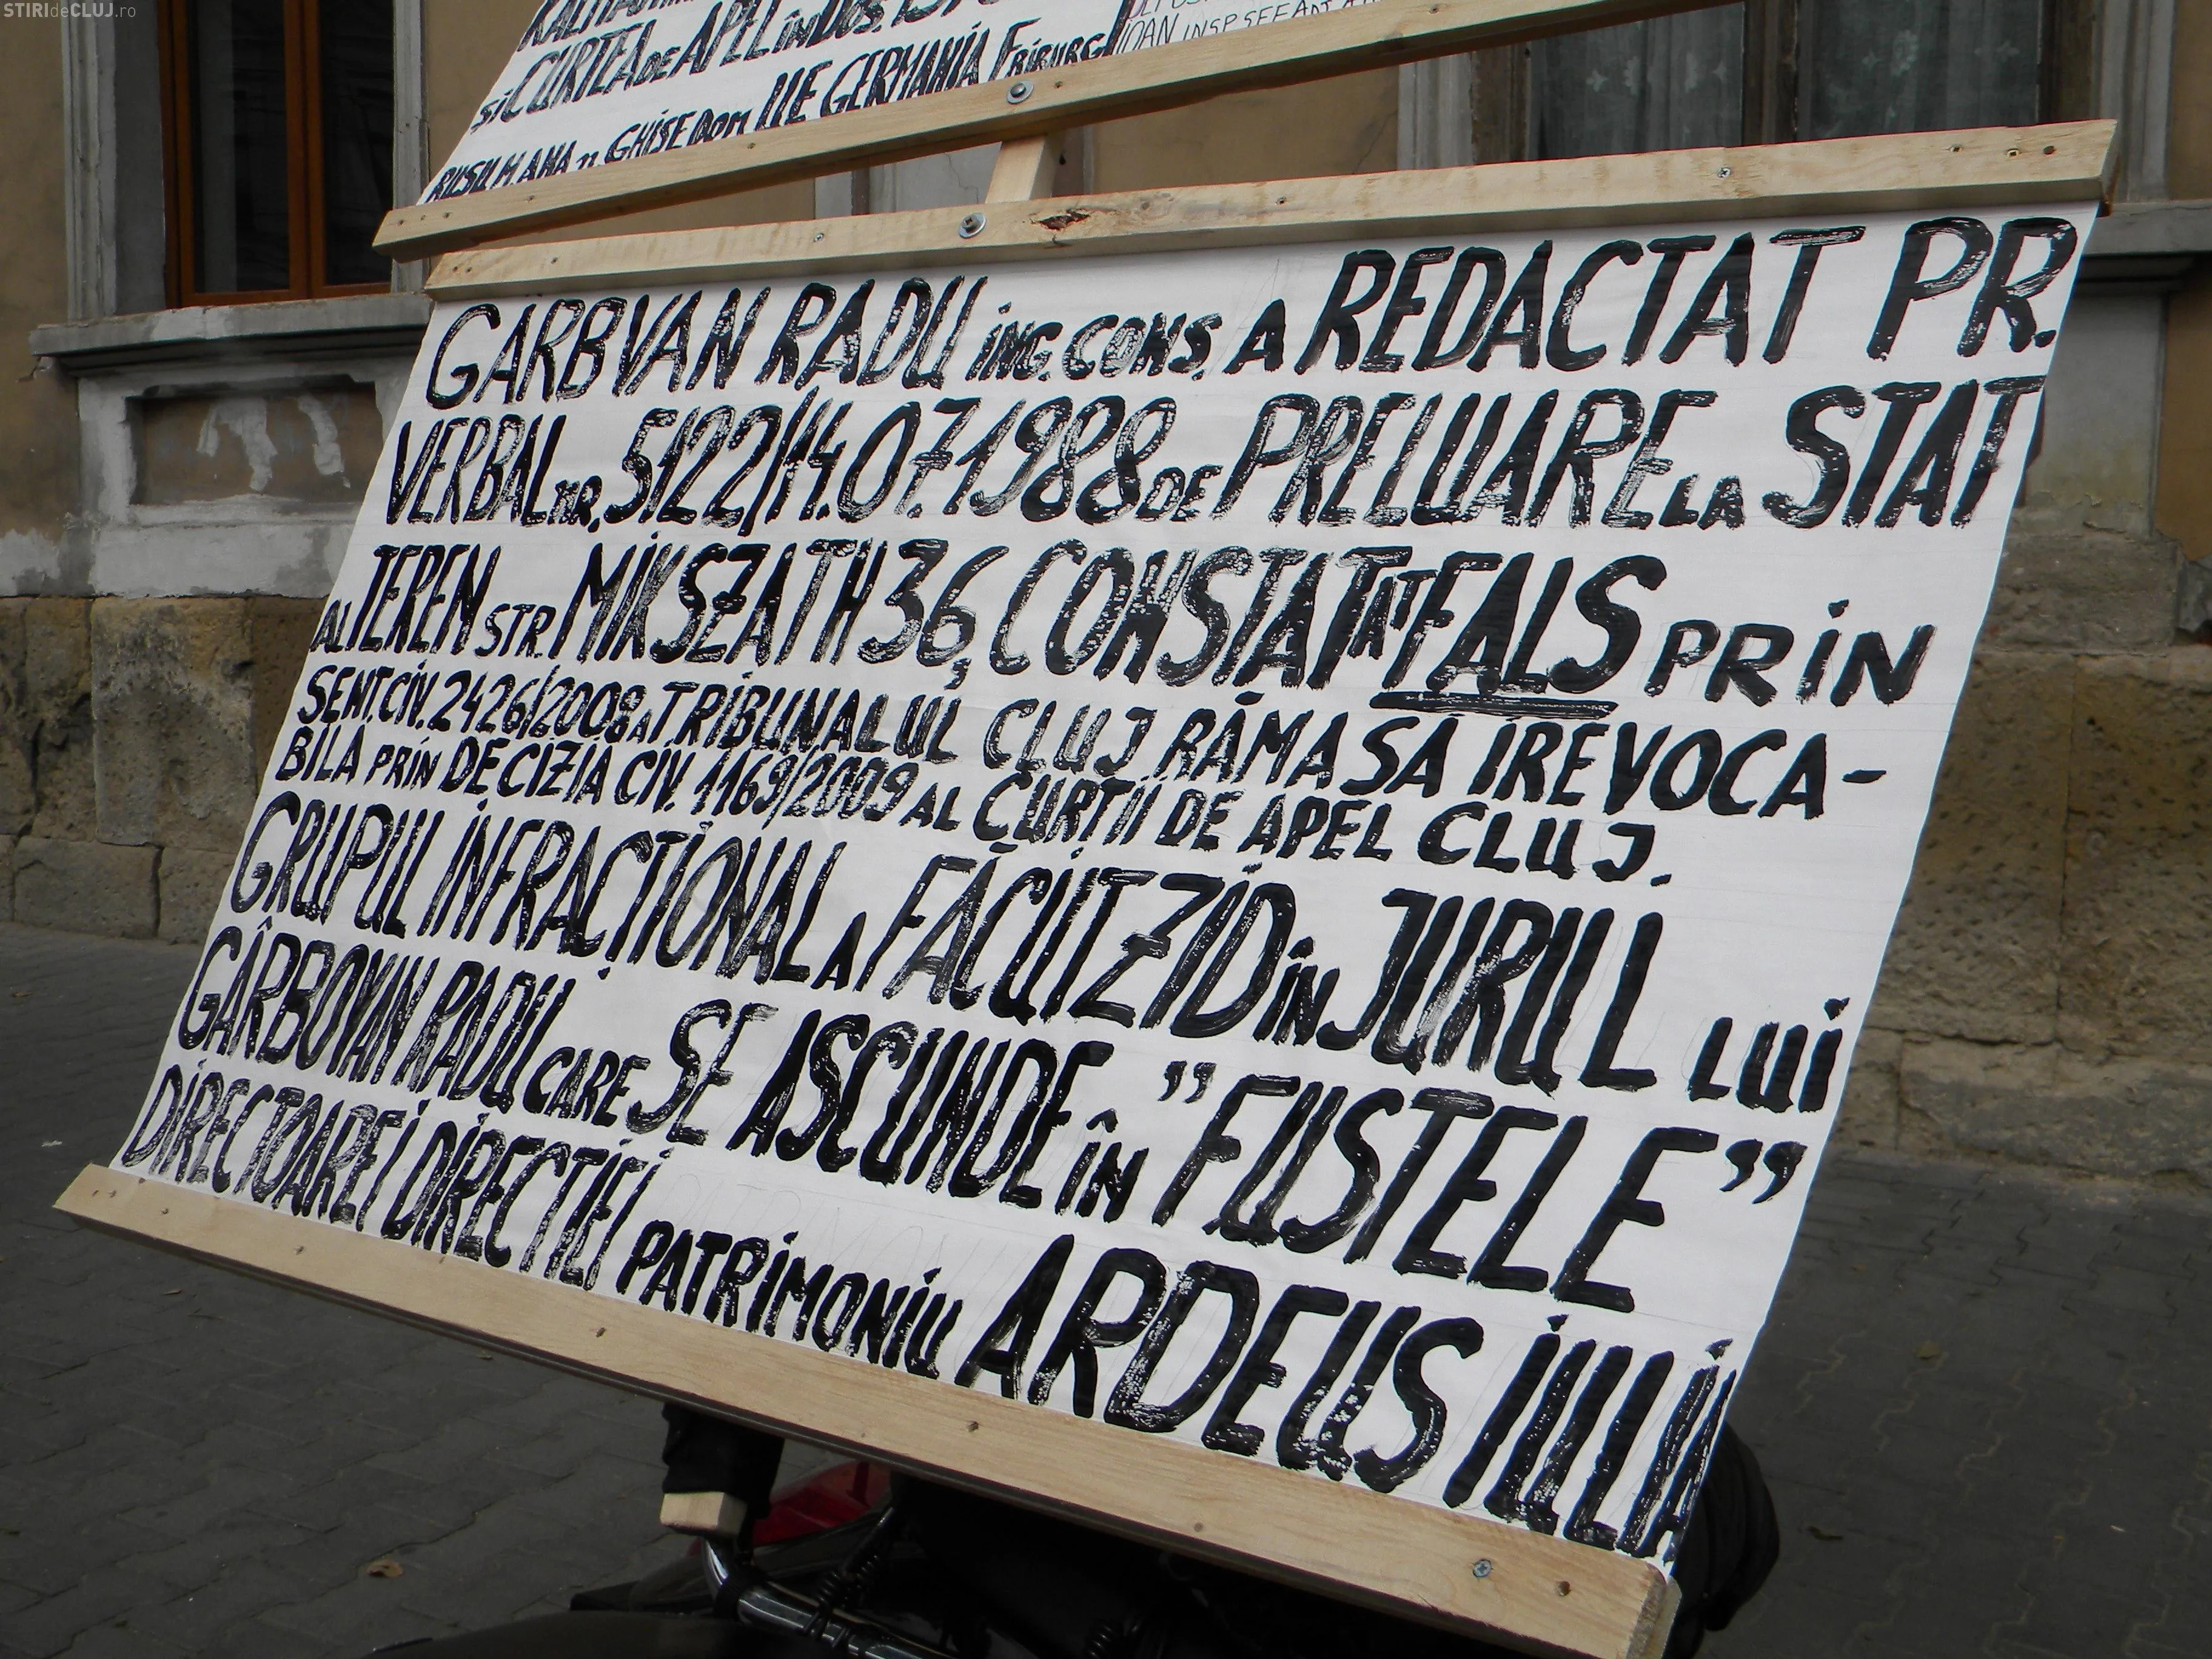 STIRIdeCLUJ.ro
și CURTEA DE APEL în DOS.
IOAN INSP SEE
RUSU M. ANA GHISE DOM ILE GERMANIA FRIBURG
GARBVAN RADU iNG. CONS. A REDACTAT PR.
VERBAL NR. 5122/14.07.1988 DE PRELUARE LA STAT
AL TEREN STR. MIKSZATH 36, CONSTATAT FALS PRiN
SENT. CiV. 2426/2008 A TRiBUNALUL CLUJ RĂMASA IREVOCA-
BILA PRiN DECIZIA CiV. 1169/2009 AL CURȚII DE APEL CLUJ.
GRUPUL INFRACȚIONAL A FĂCUT ZID îN JURUL LUi
GÂRBOVAN RADU CARE SE ASCUNDE îN "FUSTELE"
DIRECTOAREI DIRECTIEI PATRiMONiU ARDEUS IULIA